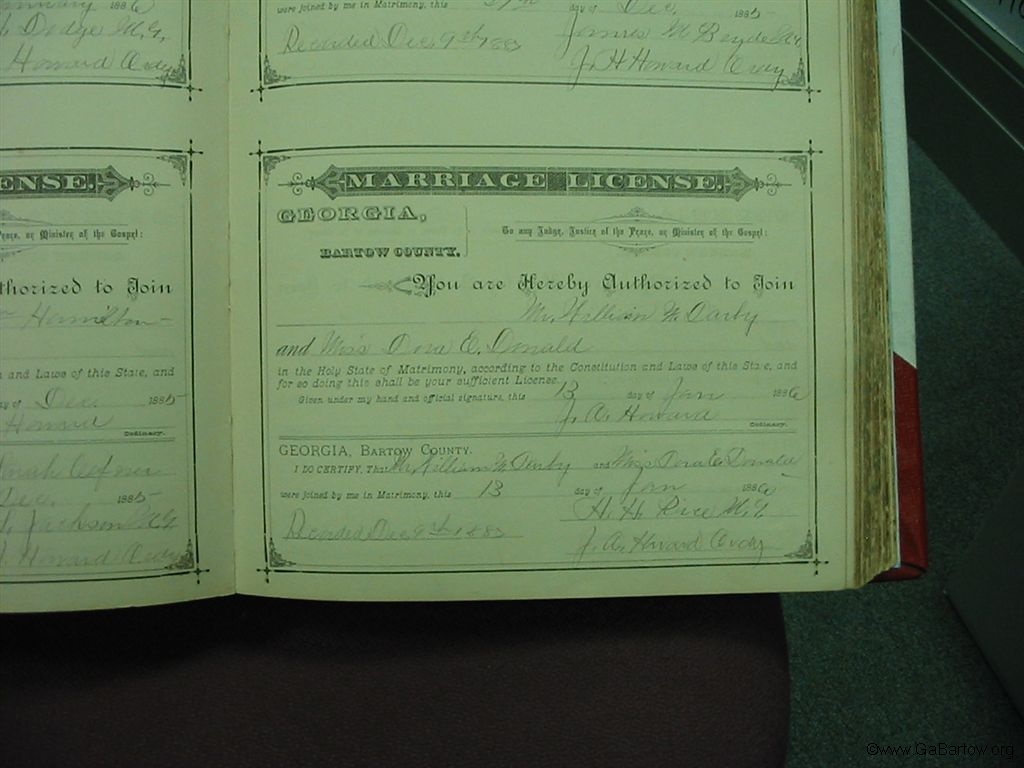 188
. Dodge M.G.
Howard Ordy
were joined by me in Matrimony, this day of Dec. 1885
Recorded Dec. 9th 188
James M
J. H Howard Ordy
ENSE.
Peace, or Minister of the Gospel:
thorized to Join
Hamilton
n and Laws of this State, and
ay of Dec. 1885
Howard
Ordinary.
Dec. 1885
. Jackson M.G
. Howard Ordy
MARRIAGE LICENSE.
GEORGIA,
BARTOW COUNTY.
To any Judge, Justice of the Peace, or Minister of the Gospel:
You are Hereby Authorized to Join
Mr. William W. Darby
and Miss Dora E. Donald
in the Holy State of Matrimony, according to the Constitution and Laws of this State, and
for so doing this shall be your sufficient License.
Given under my hand and official signature, this 13 day of Jan 1886
J. A. Howard
Ordinary.
GEORGIA, BARTOW COUNTY.
I DO CERTIFY, That Mr. William W. Darby and Miss Dora E. Donald
were joined by me in Matrimony, this 13 day of Jan 1886
H. H. Rice M.G
Recorded Dec 9th 188
J. A. Howard Ordy
©www.GaBartow.org